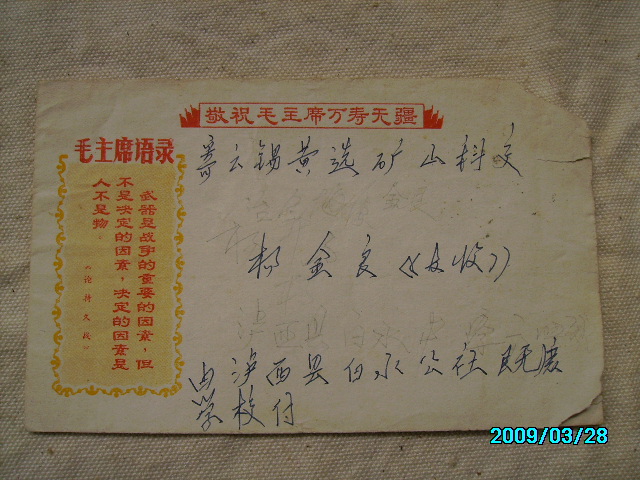 敬祝毛主席万寿无疆
毛主席语录
武器是战争的重要的因素，但
不是决定的因素，决定的因素是
人不是物。
《论持久战》
寄云锡黄选矿山科交
杨金良《女收》
由泸西县白水公社
学校付
2009/03/28